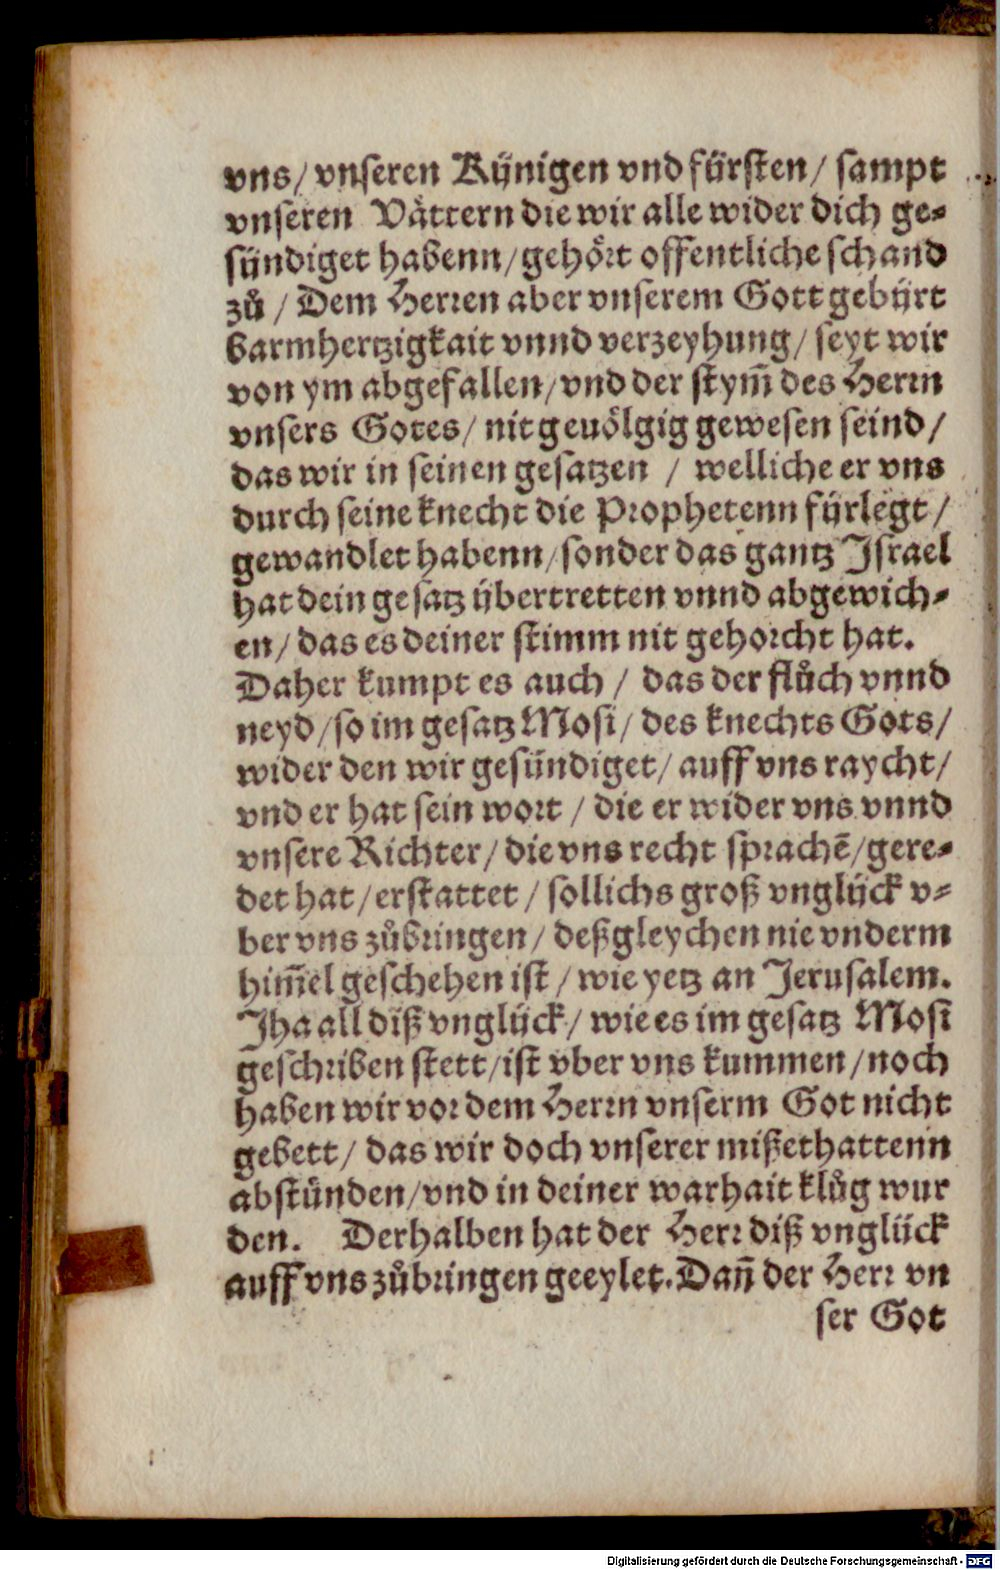 vns/ vnseren Kynigen vnd fürsten/ sampt
vnseren Vättern die wir alle wider dich ge⸗
sündiget habenn/ gehört offentliche schand
zů / Dem Herren aber vnserem Gott gebürt
barmhertzigkait vnnd verzeyhung/ seyt wir
von ym abgefallen/ vnd der stym̄ des Herrn
vnsers Gotes/ nit geuölgig gewesen seind/
das wir in seinen gesatzen / welliche er vns
durch seine knecht die Prophetenn fürlegt/
gewandlet habenn/ sonder das gantz Israel
hat dein gesatz übertretten vnnd abgewich⸗
en/ das es deiner stimm nit gehorcht hat.
Daher kumpt es auch / das der flůch vnnd
neyd/ so im gesatz Mosi/ des knechts Gots/
wider den wir gesündiget/ auff vns raycht/
vnd er hat sein wort / die er wider vns vnnd
vnsere Richter/ die vns recht sprachē/ gere⸗
det hat/ erstattet / sollichs groß vnglück v⸗
ber vns zůbringen/ deßgleychen nie vnderm
him̄el geschehen ist / wie yetz an Jerusalem.
Jha all diß vnglück/ wie es im gesatz Mosi
geschriben stett/ ist vber vns kummen/ noch
haben wir vor dem Herrn vnserm Got nicht
gebett/ das wir doch vnserer mißethattenn
abstünden/ vnd in deiner warhait klůg wur
den. Derhalben hat der Herr diß vnglück
auff vns zůbringen geeylet. Dañ der Herr vn
ser Got
Digitalisierung gefördert durch die Deutsche Forschungsgemeinschaft - DFG